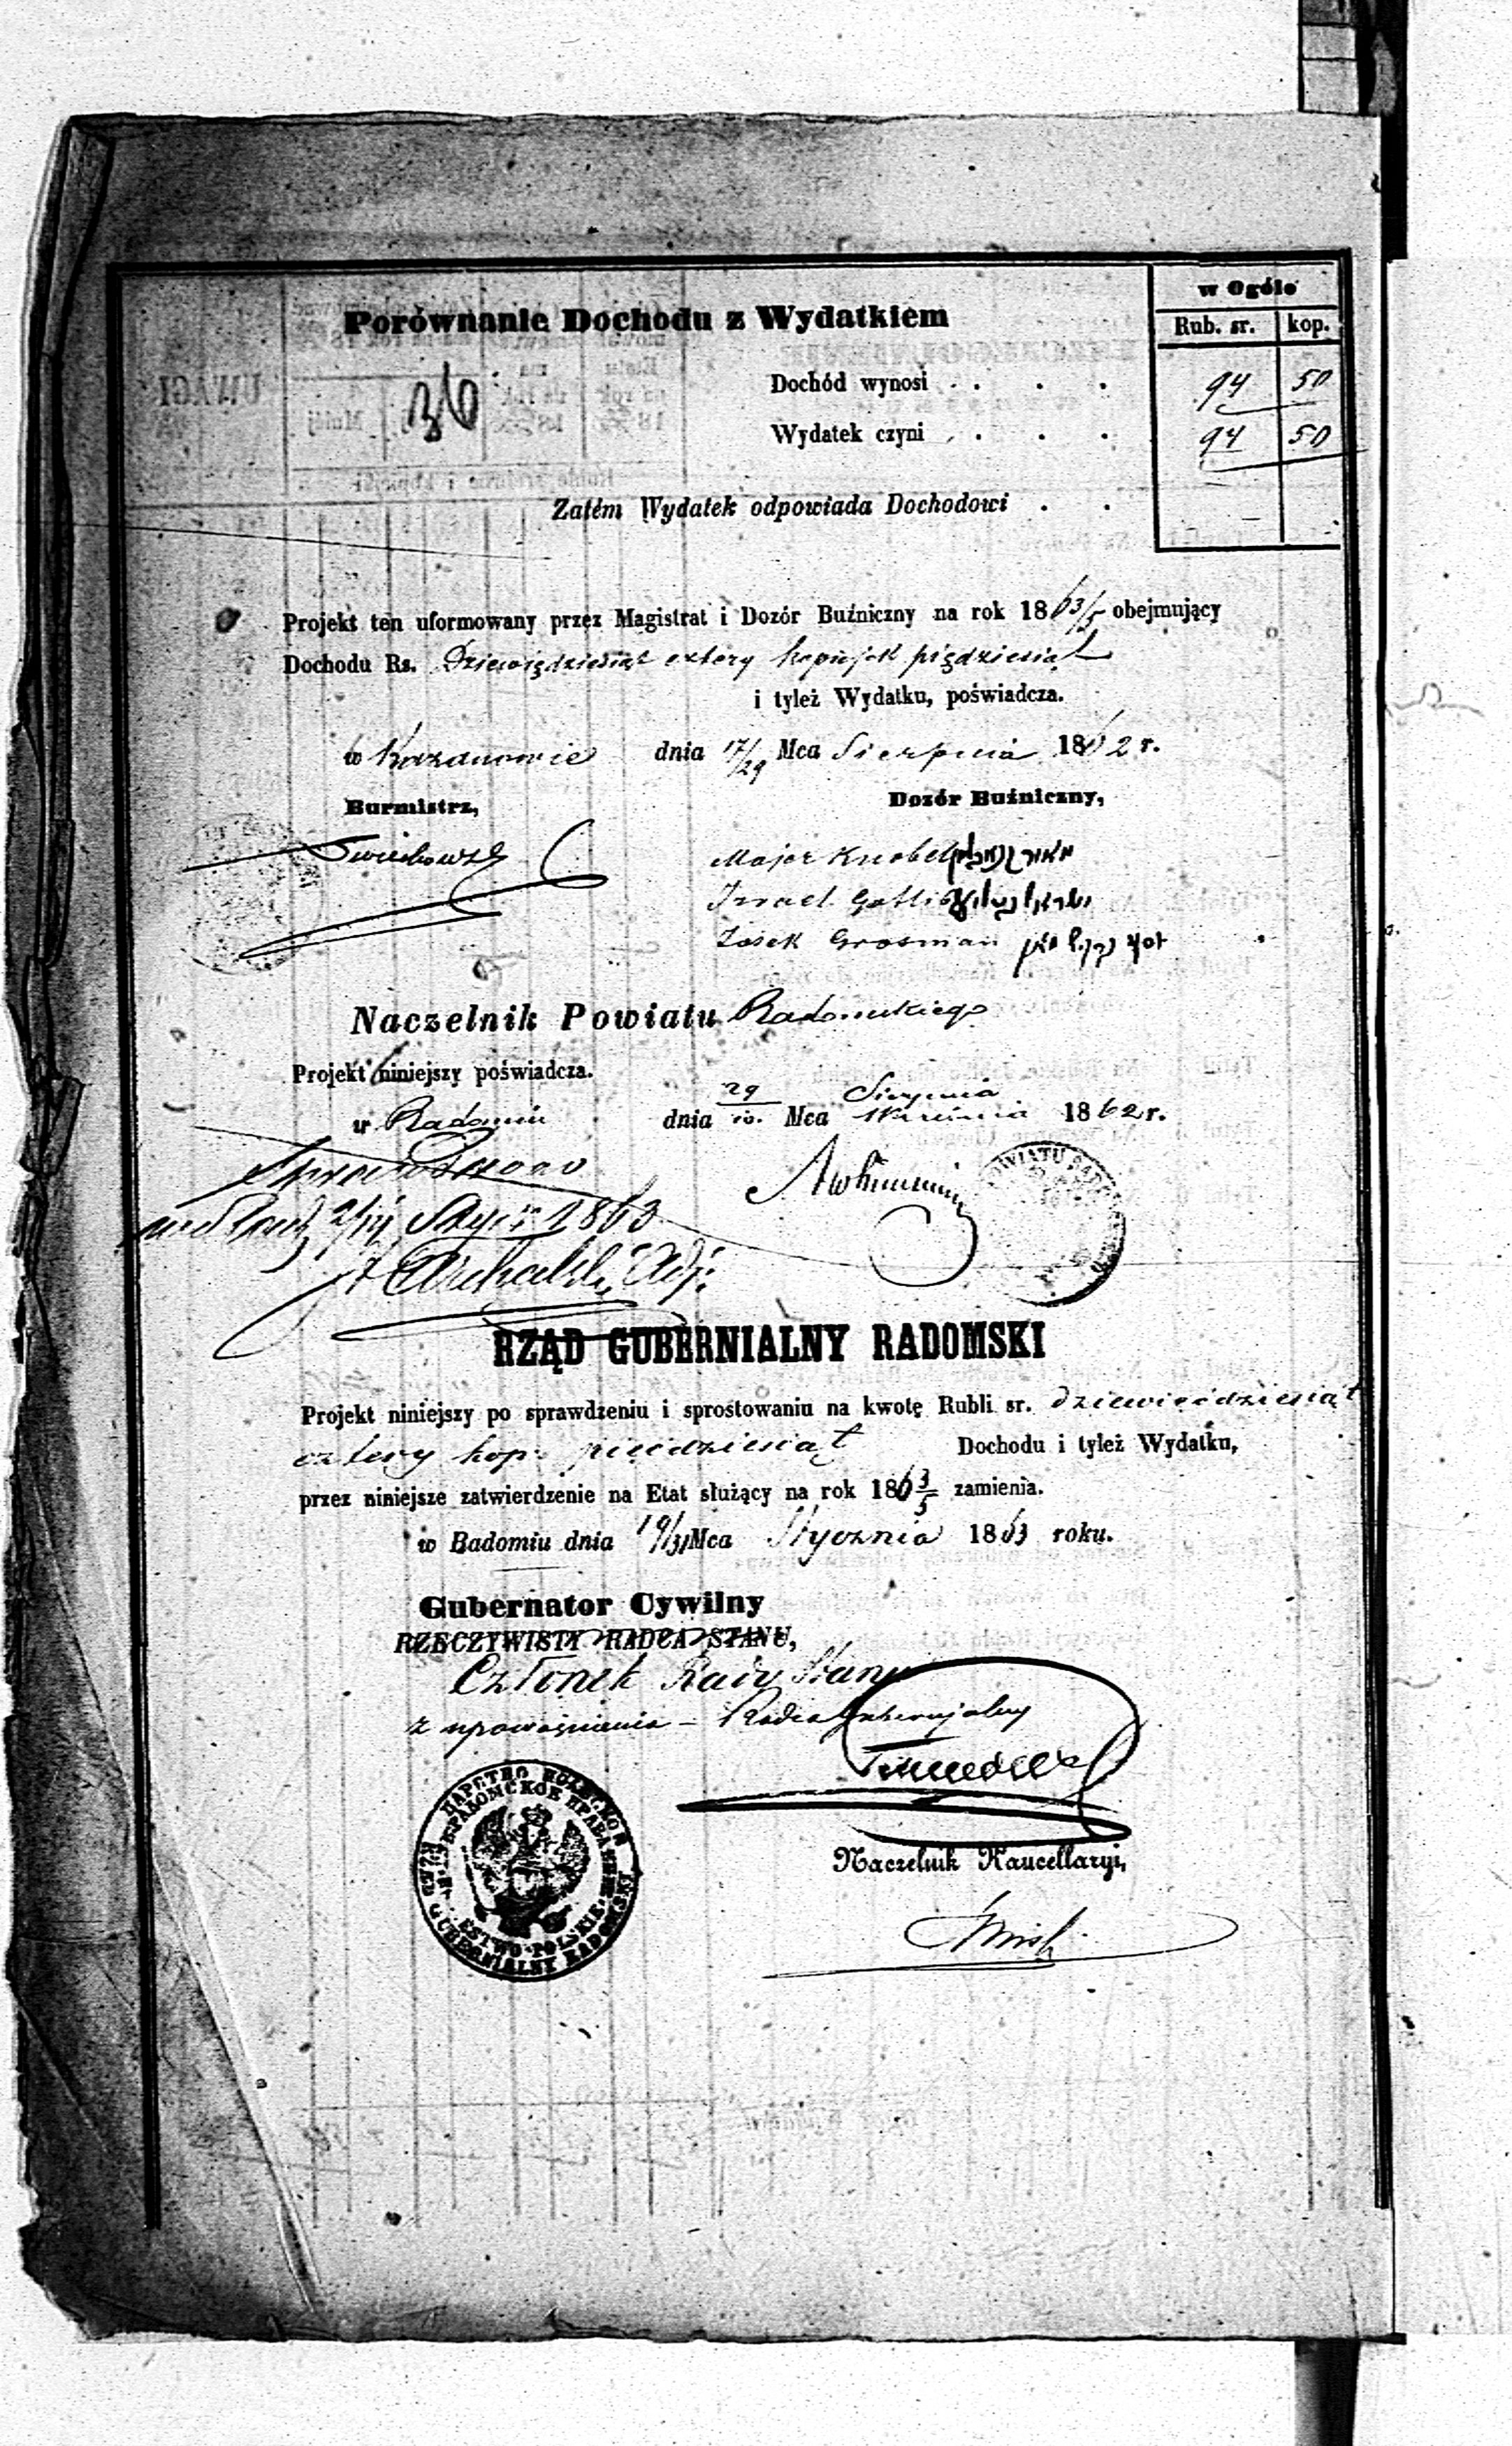 w Ogóle
Porównanie Dochodu z Wydatkiem
Rub. sr. kop.
36
Dochód wynosi . . . 94 50
Wydatek czyni . . . 94 50
Zatém Wydatek odpowiada Dochodowi . .
Projekt ten uformowany przez Magistrat i Dozór Buźniczny na rok 1863/5 obejmujący
Dochodu Rs. Dziewiędziesiąt cztery kopiejek piędziesiąt
i tyleż Wydatku, poświadcza.
w Kazanowie dnia 17/29 Mca Sierpnia 1862 r.
Burmistrz, Dozór Buźniczny,
Major Knobel
Izrael Gotlib
Josek Grosman
Naczelnik Powiatu Radomskiego
Projekt niniejszy poświadcza.
w Radomiu dnia 29/10. Mca Sierpnia/Września 1862 r.
Sprawdzono
2/14 Stycz: 1863
Adj:
POWIATU
RZĄD GUBERNIALNY RADOMSKI
Projekt niniejszy po sprawdzeniu i sprostowaniu na kwotę Rubli sr. dziewięćdziesiąt
cztery kop: pięćdziesiąt Dochodu i tyleż Wydatku,
przez niniejsze zatwierdzenie na Etat służący na rok 1863/5 zamienia.
w Radomiu dnia 19/31 Mca Stycznia 1863 roku.
Gubernator Cywilny
RZECZYWISTY RADCA STANU,
Członek Rady Stanu
z upoważnienia - Radca Gubernjalny
ЦАРСТВО ПОЛЬСКОЕ
РАДОМСКОЕ
RZĄD GUBERNIALNY RADOMSKI
Naczelnik Kancellaryi,